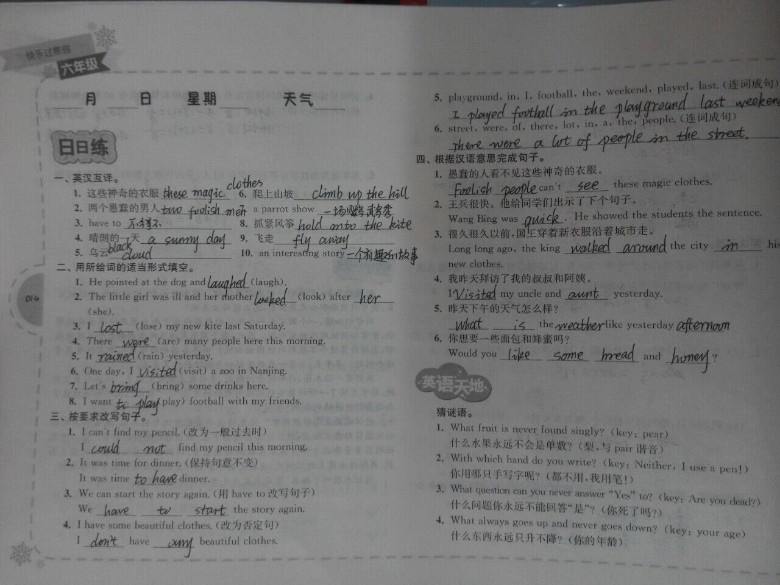 快乐过寒假
六年级
月 日 星期 天气
日日练
一、英汉互译。
1. 这些神奇的衣服 these magic clothes 6. 爬上山坡 climb up the hill
2. 两个愚蠢的男人 two foolish men 7. a parrot show 一场鹦鹉表演
3. have to 不得不 8. 抓紧风筝 hold onto the kite
4. 晴朗的一天 a sunny day 9. 飞走 fly away
5. 乌云 black cloud 10. an interesting story 一个有趣的故事
二、用所给词的适当形式填空。
1. He pointed at the dog and laughed (laugh).
2. The little girl was ill and her mother looked (look) after her
(she).
3. I lost (lose) my new kite last Saturday.
4. There were (are) many people here this morning.
5. It rained (rain) yesterday.
6. One day, I visited (visit) a zoo in Nanjing.
7. Let's bring (bring) some drinks here.
8. I want to play (play) football with my friends.
三、按要求改写句子。
1. I can't find my pencil. (改为一般过去时)
I could not find my pencil this morning.
2. It was time for dinner. (保持句意不变)
It was time to have dinner.
3. We can start the story again. (用 have to 改写句子)
We have to start the story again.
4. I have some beautiful clothes. (改为否定句)
I don't have any beautiful clothes.
014
5. playground, in, I, football, the, weekend, played, last. (连词成句)
I played football in the playground last weeken
6. street, were, of, there, lot, in, a, the, people. (连词成句)
There were a lot of people in the street.
四、根据汉语意思完成句子。
1. 愚蠢的人看不见这些神奇的衣服。
Foolish people can't see these magic clothes.
2. 王兵很快。他给同学们出示了下个句子。
Wang Bing was quick. He showed the students the sentence.
3. 很久很久以前,国王穿着新衣服沿着城市走。
Long long ago, the king walked around the city in his
new clothes.
4. 我昨天拜访了我的叔叔和阿姨。
I visited my uncle and aunt yesterday.
5. 昨天下午的天气怎么样?
what is the weather like yesterday afternoon
6. 你想要一些面包和蜂蜜吗?
Would you like some bread and honey?
英语天地
猜谜语。
1. What fruit is never found singly? (key: pear)
什么水果永远不会是单数? (梨,与 pair 谐音)
2. With which hand do you write? (key: Neither, I use a pen!)
你用哪只手写字呢? (都不用,我用笔!)
3. What question can you never answer "Yes" to? (key: Are you dead?)
什么问题你永远不能回答"是"? (你死了吗?)
4. What always goes up and never goes down? (key: your age)
什么东西永远只升不降? (你的年龄)